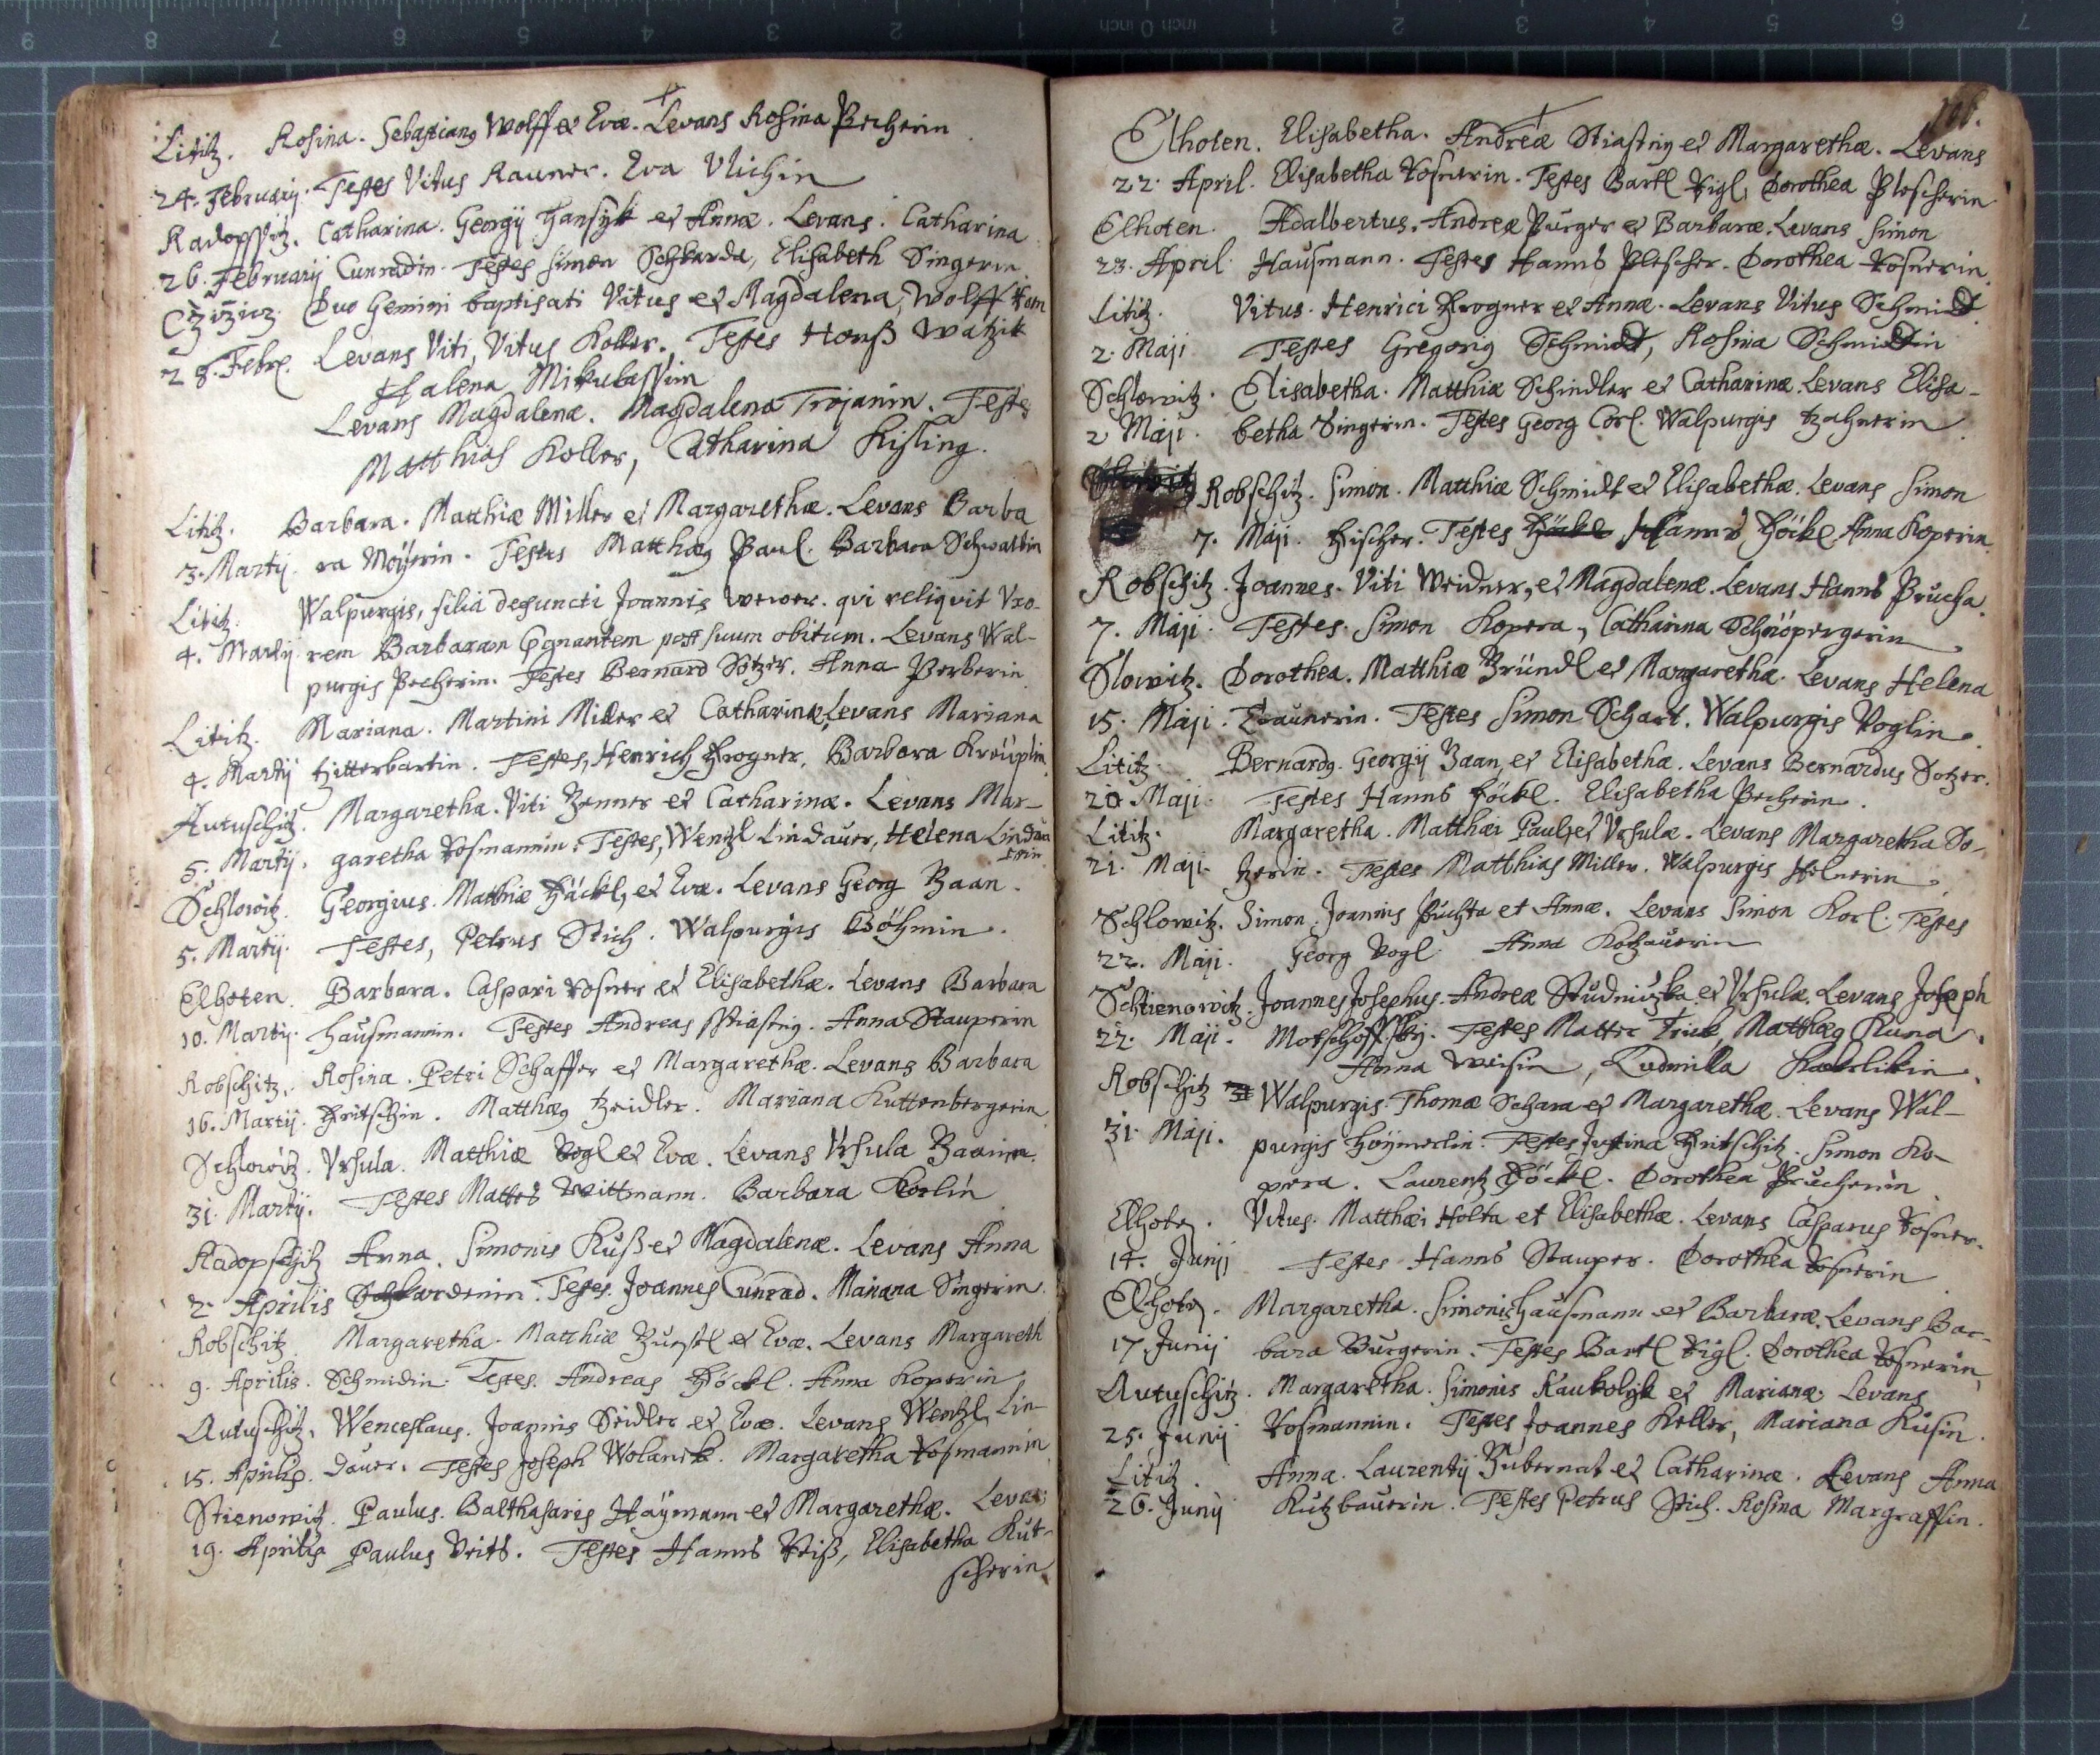 Litiz. Rosina. Sebastiang Wolff et Evæ. Levans Rosina Pecherin
24. Februarij. Testes Vitus Rauner. Eva Ulichin
Radopssitz. Catharina. Georgij Hansyk et Annæ. Levans. Catharina
26. Februarij Cunradin. Testes Simon Schkarda, Elisabeth Singerin.
Duo Gemini baptisati Vitus et Magdalena, Wolff
28. Febr. Levans Viti, Vitus Koller. Testes Hanß Watzik
Halena Mikulassin
Levans Magdalenæ. Magdalena Trojanin. Testes
Matthias Koller, Catharina Kisling.
Litiz. Barbara. Matthiæ Miller et Margarethæ. Levans Barba
3. Martij. ra Möyerin. Testes Matthæg Paul. Barbara Schwalbin
Litiz. Walpurgis, filia defuncti Joannis Wewer. qui reliquit Vxo-
4. Martij rem Barbaram Pgnantem post suum obitum. Levans Wal-
purgis Pecherin. Testes Bernard Sotzer. Anna Perberin
Litiz. Mariana. Martini Miller et Catharinæ, Levans Mariana
4. Martij Zitterbartin. Testes, Henrich Frogner, Barbara Kreuplin
Autuschiz. Margaretha. Viti Zenner et Catharinæ. Levans Mar-
5. Martij. garetha Tosmannin. Testes, Wenzl Lindauer, Helena Lindau
erin
Schlowiz. Georgius. Matthiæ Häckl, et Evæ. Levans Georg Baan.
5. Martij. Testes, Petrus Stich. Walpurgis Böhmin.
Elhoten. Barbara. Caspari Tosner et Elisabethæ. Levans Barbara
10. Martij. Hausmannin. Testes Andreas Sstiastnij. Anna Stauperin
Robschitz. Rosina. Petri Schaffer et Margarethæ. Levans Barbara
16. Martij. Fritschin. Matthæg Zeidler. Mariana Kuttenbergerin
Schlowitz. Vrsula. Matthiæ Vogl et Evæ. Levans Vrsula Baanin.
31. Martij. Testes Mattes Wittmann. Barbara Korlin
Radopschitz Anna. Simonis Kuß et Magdalenæ. Levans Anna
2. Aprilis Schkardenin. Testes Joannes Cunrad. Mariana Singerin.
Robschitz. Margaretha. Matthiæ et Evæ. Levans Margareth
9. Aprilis. Schmidin. Testes. Andreas Höckl. Anna Koperin
Autuschiz. Wenceslaus. Joannis Seidler et Evæ. Levans Wenzl Lin-
15. Aprilis. dauer. Testes Joseph Wolanek. Margaretha Tosmannin
Stienowitz. Paulus. Balthasaris Haymann et Margarethæ. Levans
19. Aprilis Paulus Veits. Testes Hanns Veiß, Elisabetha Kut-
scherin
Elhoten. Elisabetha. Andreæ Stiastnij et Margarethæ. Levans
22. April. Elisabetha Tosnerin. Testes Bartl Vigl, Dorothea Plescherin
Elhoten. Adalbertus. Andreæ Purger et Barbaræ. Levans Simon
23. April. Hausmann. Testes Hanns Plescher. Dorothea Tosnerin
Litiz. Vitus. Henrici Frogner et Annæ. Levans Vitus Schmidt.
2. Maji Testes Gregorig Schmidt, Rosina Schmidtin
Schlowitz. Elisabetha. Matthiæ Schindler et Catharinæ. Levans Elisa-
2 Maji. betha Singerin. Testes Georg Corl. Walpurgis Zahnerin
Robschitz. Simon. Matthiæ Schmidt et Elisabethæ. Levans Simon
7. Maji. Fischer. Testes Hanns Höckl Anna Koperin.
Robschitz. Joannes. Viti Weidner, et Magdalenæ. Levans Hanns Prucha.
7. Maji. Testes. Simon Kopera, Catharina Schnöpergerin
Slowitz. Dorothea. Matthiæ Bründl et Margaretha. Levans Helena
15. Maji. Braunerin. Testes Simon Scharl. Walpurgis Voglin.
Litiz. Bernardg. Georgij Baan, et Elisabethæ. Levans Bernardus Sotzer.
20. Maji. Testes Hanns Höckl. Elisabetha Pecherin.
Litiz. Margaretha. Matthæi Paul, et Vrsulæ. Levans Margaretha So-
21. Maji. tzerin. Testes Matthias Miller. Walpurgis Helnerin
Schlowitz. Simon. Joannis Puchta et Annæ. Levans Simon Korl. Testes
22. Maji. Georg Vogl. Anna Kotzauerin
Schtienowitz. Joannes Josephus. Andreæ Studnitzka et Vrsulæ. Levans Joseph
22. Maji. Motschoffsky. Testes Mattes Trick, Matthæg Kuna.
Anna Weisin, Ludmilla Kokrlikin.
Robschitz Walpurgis. Thomæ Schara et Margarethæ. Levans Wal-
31. Maji. purgis Höymerlin. Testes Justina Fritschitz. Simon Ko-
pera. Laurentz Höckl. Dorothea Prucherin
Elhotg. Vitus. Matthæi Holta et Elisabethæ. Levans Casparus Tosner.
14. Junij Testes Hanns Stauper. Dorothea Tosnerin
Elhotg. Margaretha. Simonis Hausmann et Barbaræ. Levans Bar-
17. Junij bara Burgerin. Testes Bartl Vigl. Dorothea Tosnerin
Autuschiz. Margaretha. Simonis Kaukolyk et Marianæ. Levans
25. Junij Tosmannin. Testes Joannes Keller, Mariana Kusin.
Litiz. Anna. Laurentij Gubernat et Catharinæ. Levans Anna
26. Junij Kutzbauerin. Testes Petrus Stich. Rosina Margraffin.